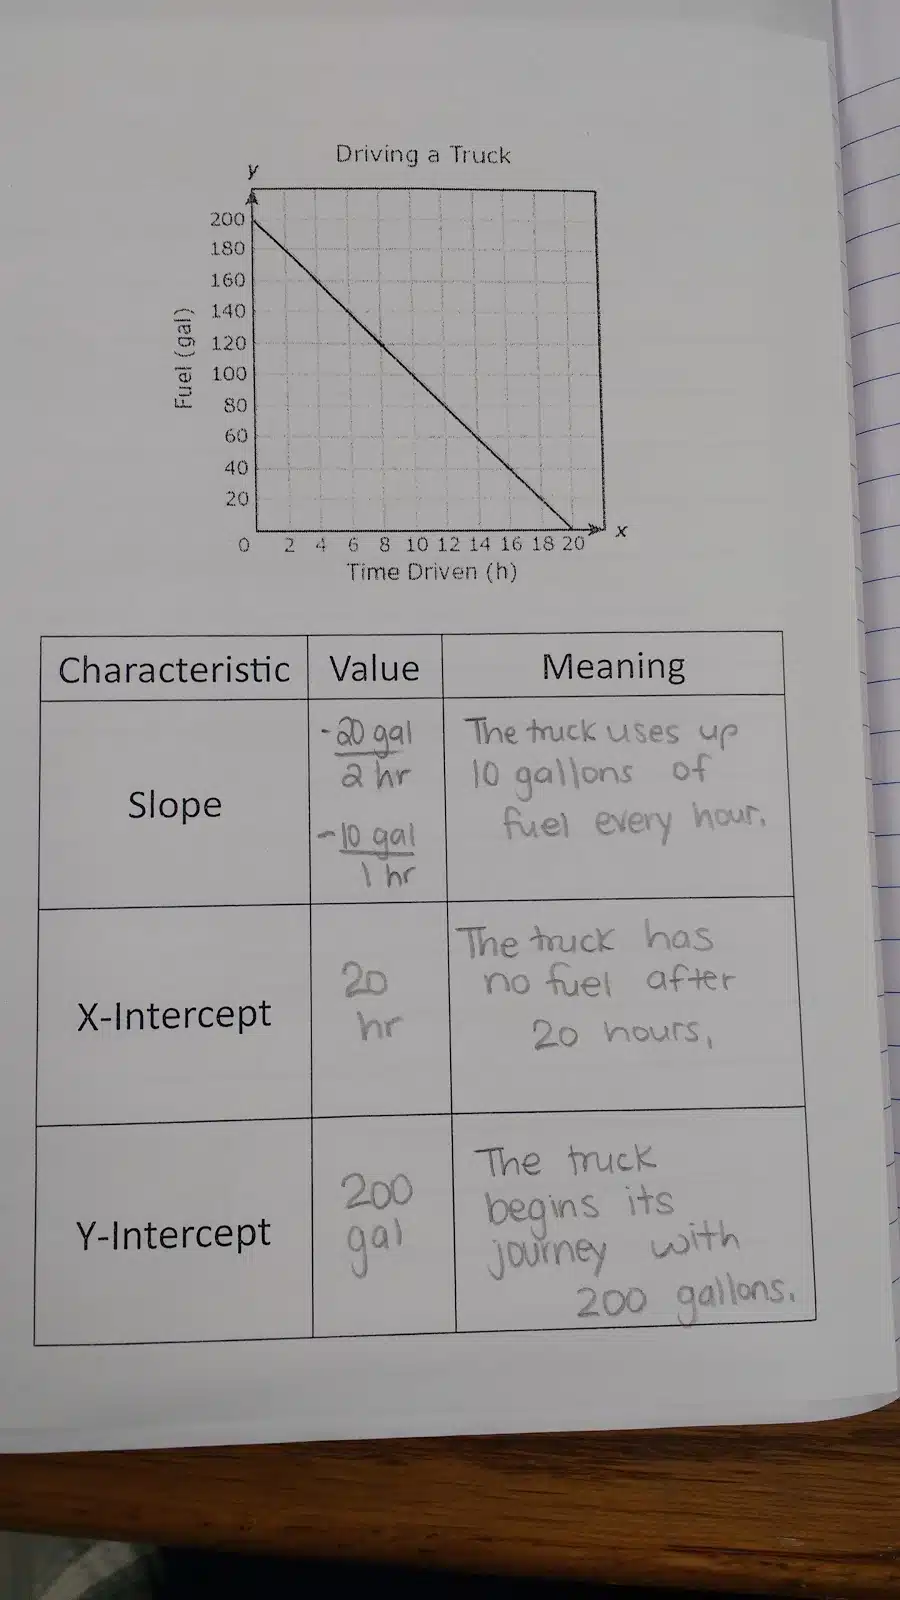 Driving a Truck
y
200
180
160
140
120
100
80
60
40
20
Fuel (gal)
0 2 4 6 8 10 12 14 16 18 20
x
Time Driven (h)
Characteristic Value Meaning
Slope
-20 gal
2 hr
-10 gal
1 hr
The truck uses up
10 gallons of
fuel every hour.
X-Intercept
20
hr
The truck has
no fuel after
20 hours.
Y-Intercept
200
gal
The truck
begins its
journey with
200 gallons.